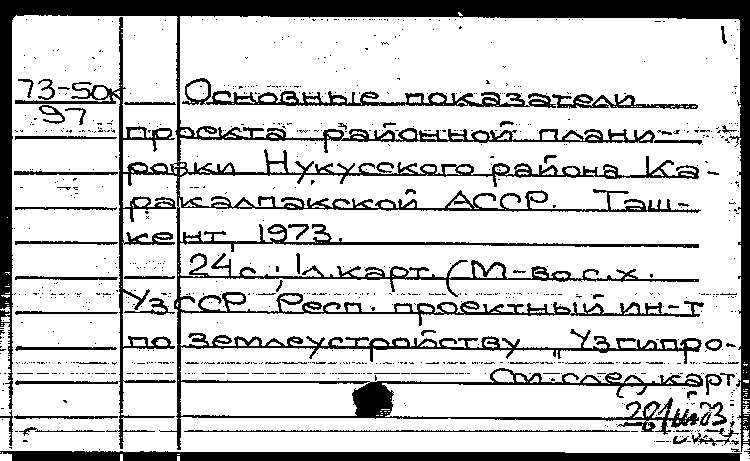 1
73-50к Основные показатели
97
проекта районной плани-
ровки Нукусского района Ка-
ракалпакской АССР. Таш-
кент, 1973.
24 с.; 1 л. карт. (М-во с.х.
УзССР. Респ. проектный ин-т
по землеустройству „Узгипро-
См. след. карт.